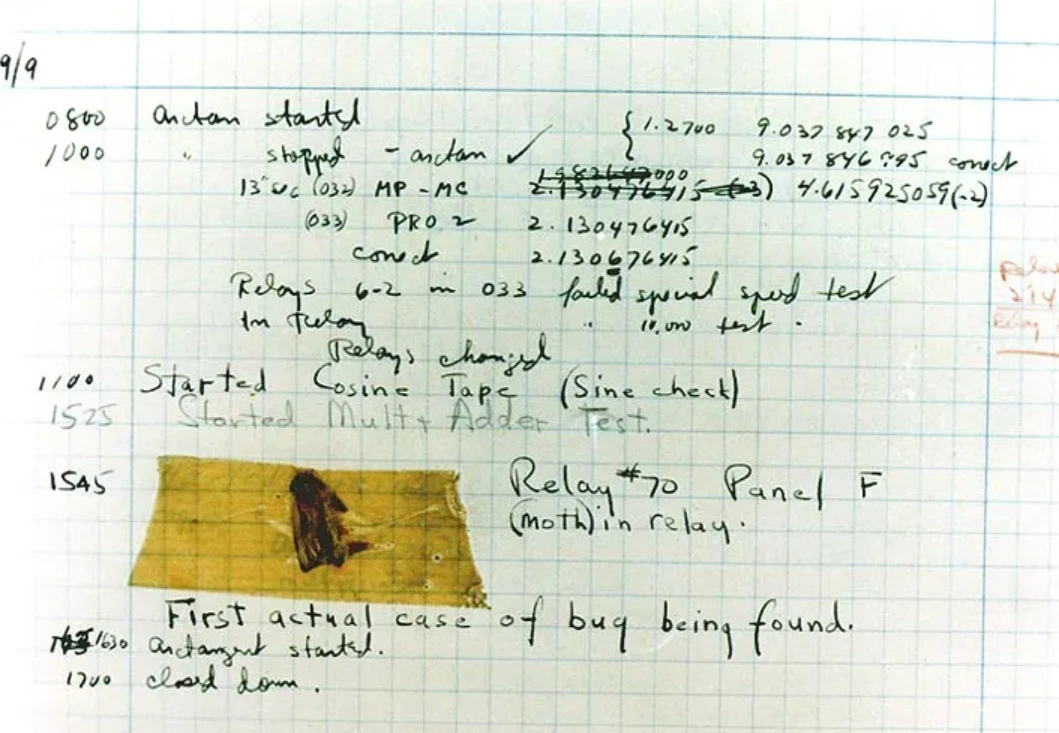 9/9
0800 arctan started { 1.2700 9.037 847 025
1000 " stopped - arctan ✓ 9.037 846 995 conect
13"uc (032) MP - MC 2.130476415 4.615925059(-2)
(033) PRO 2 2.130476415
conect 2.130676415
Relays 6-2 in 033 failed special speed test
In Relay " 10,000 test .
Relays changed
Relay
214
Relay
1100 Started Cosine Tape (Sine check)
1525 Started Mult+ Adder Test.
1545 Relay #70 Panel F
(moth) in relay.
First actual case of bug being found.
1630 arctangent started.
1700 closed down .